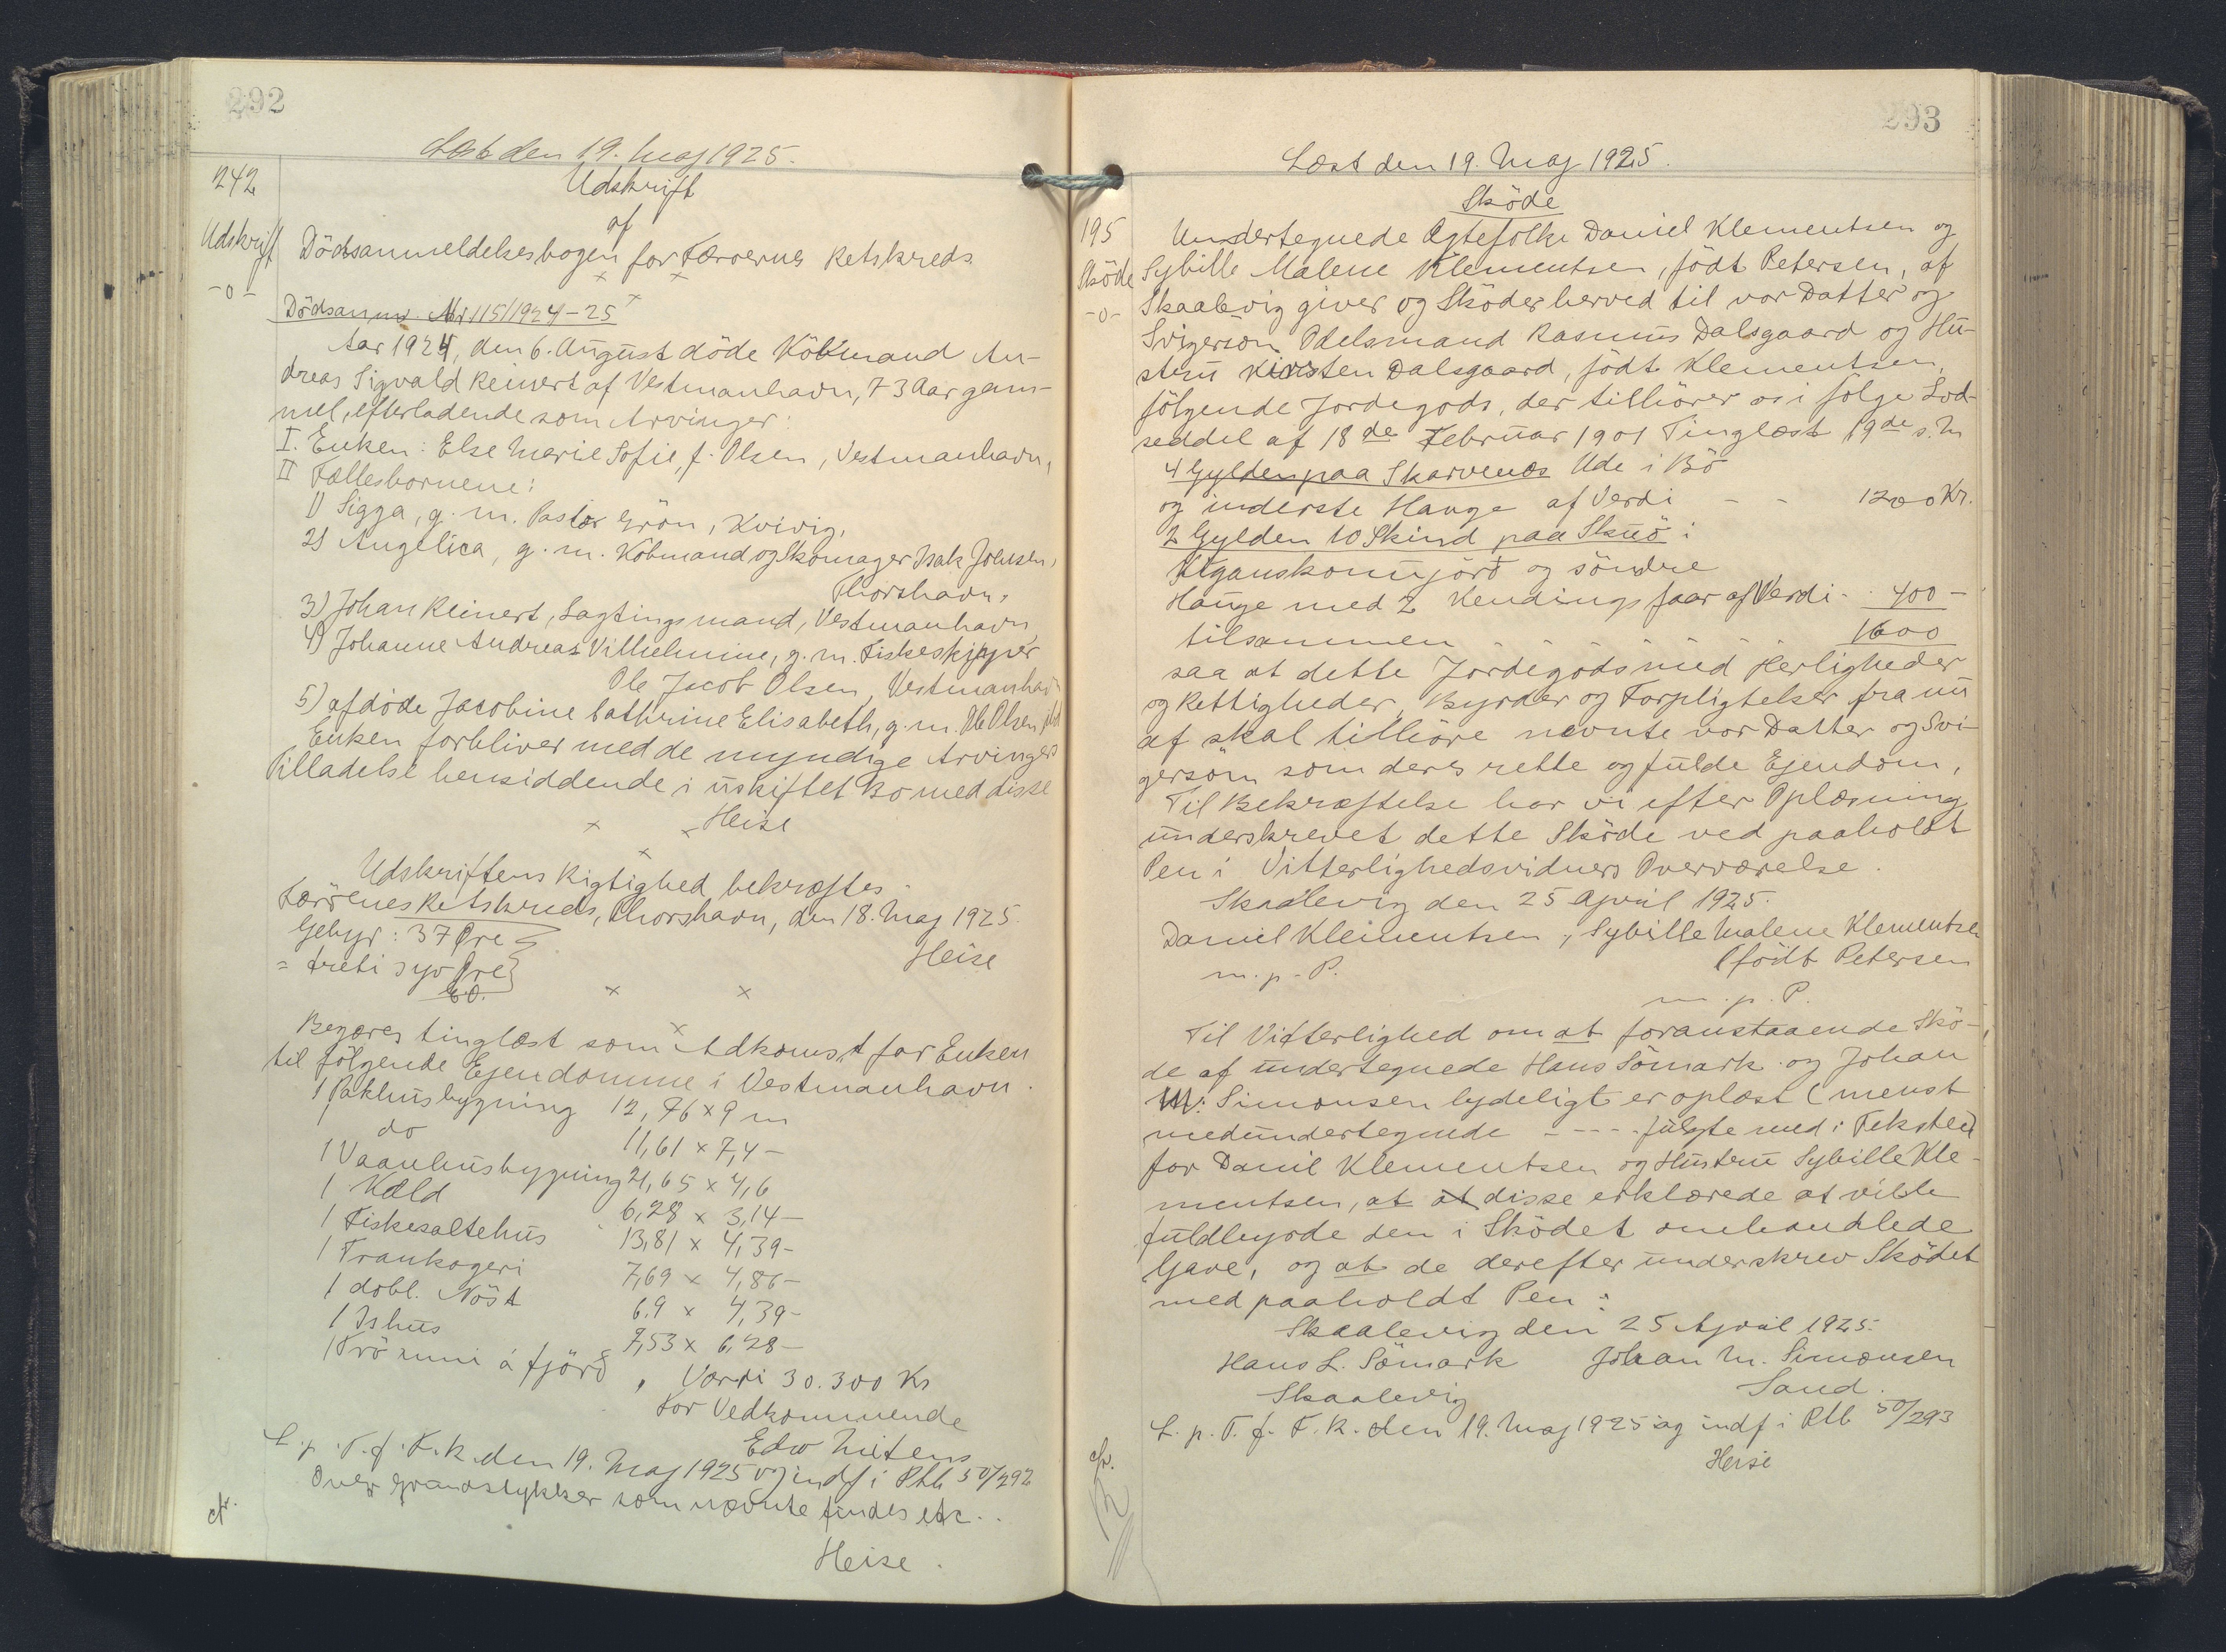 292
Læst den 19. Maj 1925.
242
Udskrift
-o-
Udskrift
af
Dödsanmeldelsesbogen for Færøernes Retskreds
Dödsanm. Nr 115/1924-25
Aar 1924, den 6. August döde Köbmand An-
dreas Sigvald Reinert af Vestmanhavn, 73 Aar gam-
mel, efterladende som Arvinger:
I. Enken: Else Marie Sofie, f. Olsen, Vestmanhavn,
II Fællesbørnene:
1) Sigga, g. m. Pastor Grön, Kvivig,
2) Angelica, g. m. Köbmand og Skomager Isak Johnsen,
Thorshavn,
3) Johan Reinert, Lagtingsmand, Vestmanhavn
4) Johanne Andreas Vilhelmine, g. m. Fiskeskipper
Ole Jacob Olsen, Vestmanhavn
5) afdöde Jacobine Cathrine Elisabeth, g. m. Ole Olsen
Enken forbliver med de myndige Arvingers
Tilladelse hensiddende i uskiftet Bo med disse
Heise
Udskriftens Rigtighed bekræftes.
Færöernes Retskreds, Thorshavn, den 18. Maj 1925.
Gebyr: 37 Øre
Heise
= treti syv Øre
E.O.
Begæres tinglæst som Adkomst for Enken
til fölgende Ejendomme i Vestmanhavn.
1 Pakhusbygning 12,76 x 9 m
1 do 11,61 x 7,4 -
1 Vaanhusbygning 21,65 x 4,6
1 Kæld 6,28 x 3,14 -
1 Fiskesaltehus 13,81 x 4,39 -
1 Trankogeri 7,69 x 4,86 -
1 dobl. Nöst 6,9 x 4,39 -
1 Ishus 7,53 x 6,28 -
1 Tröinni á fjörð, Værdi 30.300 Kr
For Vedkommende
Edw Mitens
L. p. T. f. F. R. den 19. Maj 1925 og indf i Ptb 50/292
Over Grundstykker som nævnte findes etc..
cfr.
Heise.
293
Læst den 19. Maj 1925.
Sköde
195
Sköde
-o-
Undertegnede Ægtefolk Daniel Klementsen og
Sybille Malene Klementsen, födt Petersen, af
Skaalevig giver og Sköder herved til vor Datter og
Svigersön Odelsmand Rasmus Dalsgaard og Hu-
stru Kirsten Dalsgaard, födt Klementsen,
fölgende Jordegods, der tilhörer os i fölge Lod-
seddel af 18de Februar 1901 Tinglæst 19de s. M
4 Gylden paa Skarvenæs Ude i Bö
og inderste Hauge af Verdi - - 1200 Kr.
2 Gylden 10 Skind paa Skuö i
Uganskommjörð og söndre
Hauge med 2 Kendingsfaar af Verdi - 400 -
tilsammen - - - - - - 1600
saa at dette Jordegods med Herligheder
og Rettigheder, Byrder og Forpligtelser fra nu
af skal tilhöre nævnte vor Datter og Svi-
gersön som deres rette og fulde Ejendom,
Til Bekræftelse har vi efter Oplæsning
underskrevet dette Sköde ved paaholdt
Pen i Vitterlighedsvidners Overværelse.
Skaalevig den 25 April 1925.
Daniel Klementsen, Sybille Malene Klementsen
m. p. P. födt Petersen
m. p. P.
Til Vitterlighed om at foranstaaende Skö-
de af undertegnede Hans Sömark og Johan
M. Simonsen lydeligt er oplæst (menst
medundertegnede - - - - fulgte med i Teksten)
for Daniel Klementsen og Hustru Sybille Kle-
mentsen, at at disse erklærede at ville
fuldbyrde den i Sködet omhandlede
Gave, og at de derefter underskrev Sködet
med paaholdt Pen:
Skaalevig den 25 April 1925.
Hans L. Sömark Johan M. Simonsen
Skaalevig Sand.
L. p. T. f. F. R. den 19. Maj 1925 og indf i Ptb 50/293
cfr.
Heise